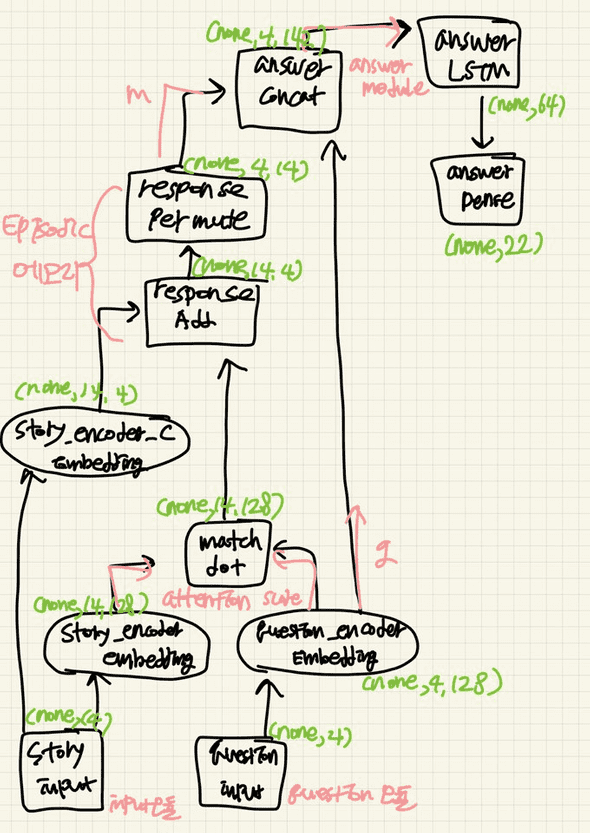 (none,4,142)
answer
concat
answer
module
answer
LSTM
(none,64)
answer
Dense
(none,22)
m
(none,4,14)
response
Permute
Episodic
메모리
(none,14,4)
response
Add
(none,14,4)
Story_encoder_C
embedding
(none,14,128)
match
dot
attention score
g
(none,14,128)
Story_encoder
embedding
Question_encoder
Embedding
(none,4,128)
(none,14)
Story
input
input 모듈
(none,4)
Question
input
Question 모듈